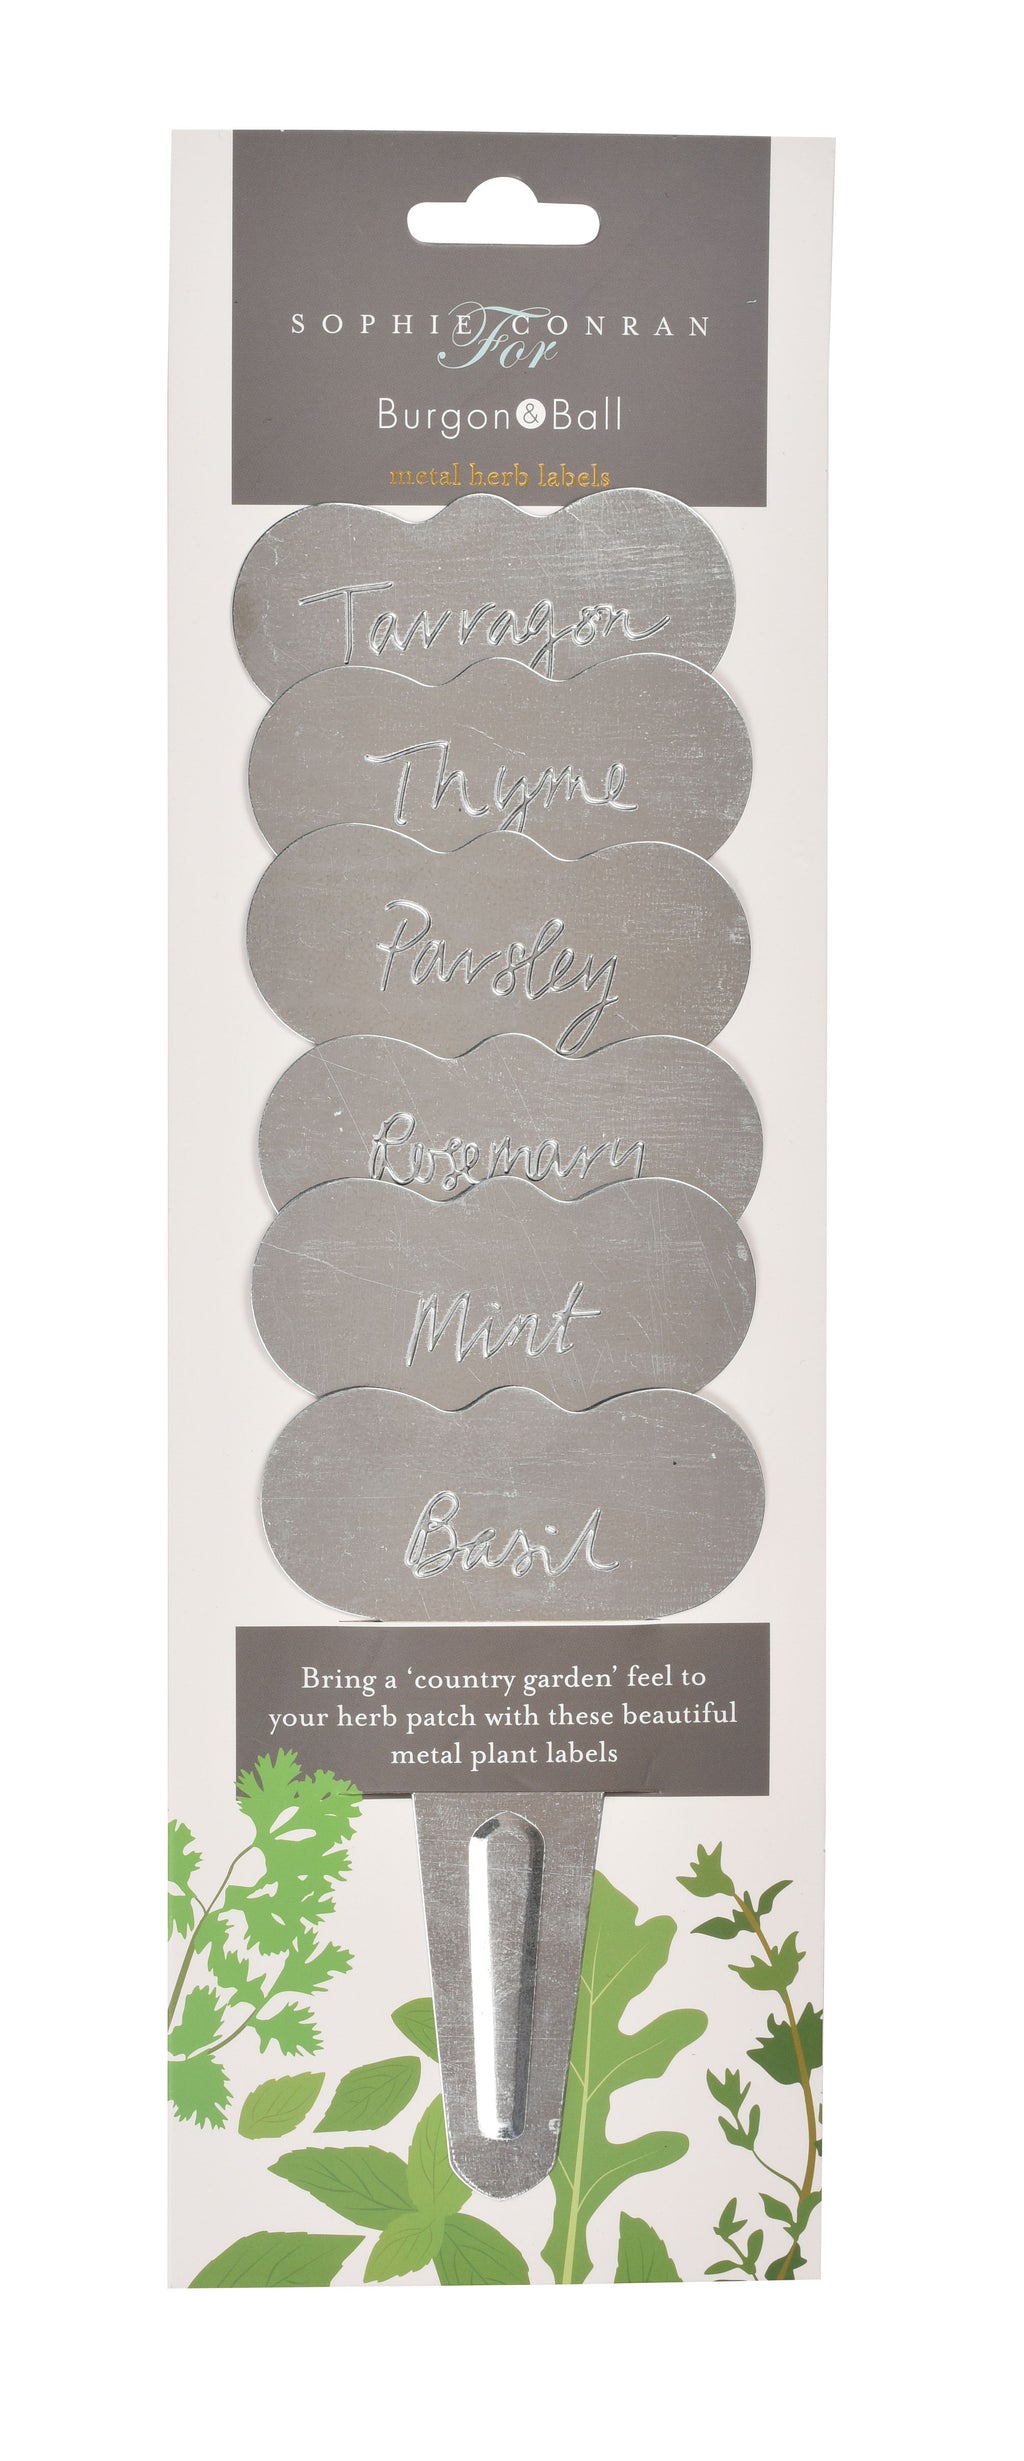 SOPHIE CONRAN
For
Burgon & Ball
metal herb labels
Tarragon
Thyme
Parsley
Rosemary
Mint
Basil
Bring a ‘country garden’ feel to
your herb patch with these beautiful
metal plant labels